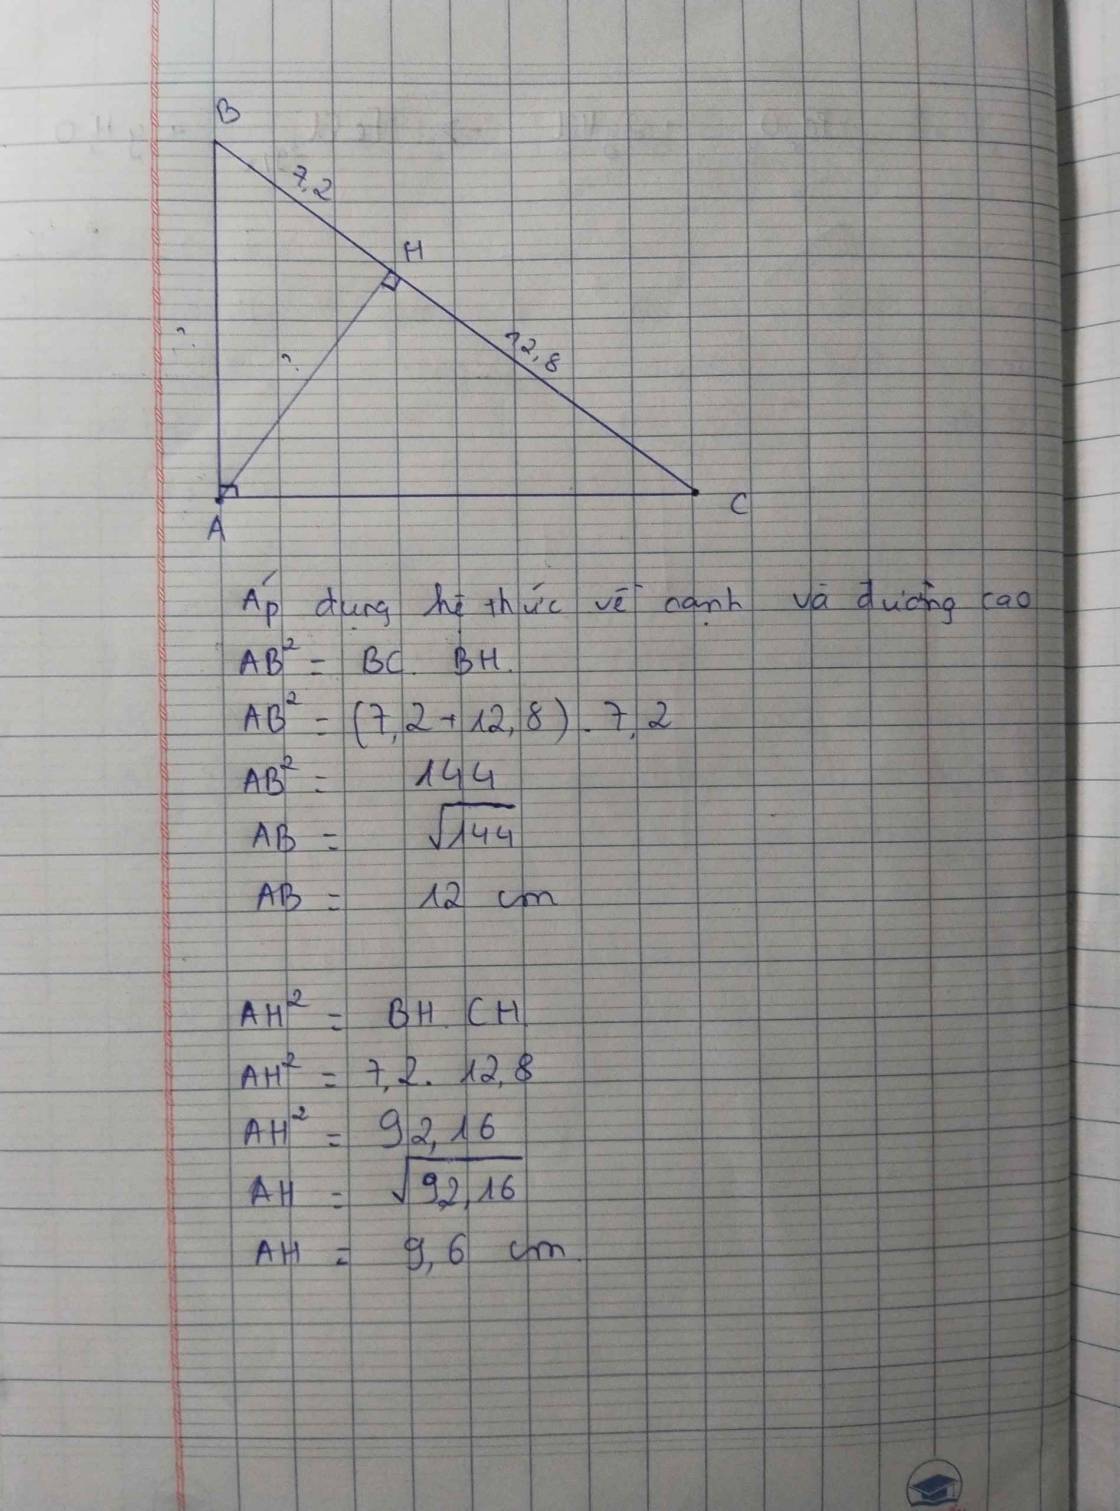 B
7,2
H
?
?
12,8
A
C
Áp dụng hệ thức về cạnh và đường cao
AB² = BC. BH.
AB² = (7,2 + 12,8). 7,2
AB² = 144
AB = √144
AB = 12 cm
AH² = BH. CH
AH² = 7,2. 12,8
AH² = 92,16
AH = √92,16
AH = 9,6 cm